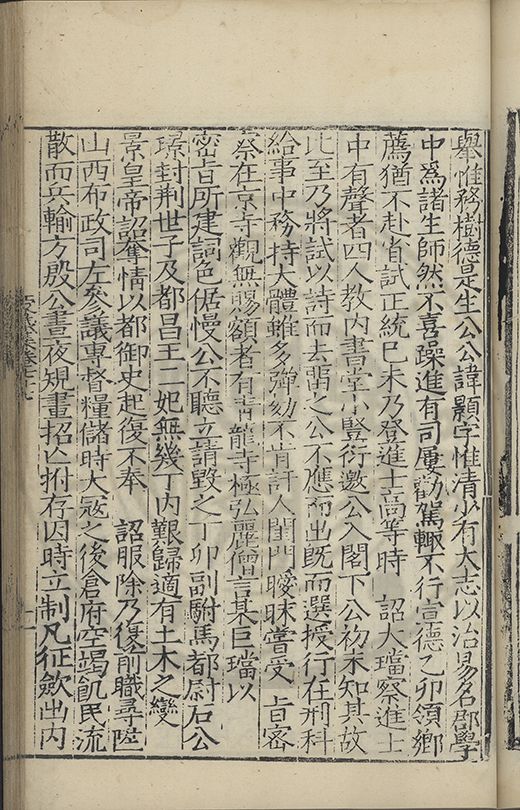 舉惟務樹德是生公公諱顥字惟清少有大志以治易名郡學
中爲諸生師然不喜躁進有司屢勸駕輒不行宣德乙卯領鄉
薦猶不赴省試正統己未乃登進士高等時 詔大璫察進士
中有聲者四人教内書堂小豎衍邀公入閣下公初未知其故
比至乃將試以詩而去留之公不應而出旣而選授行在刑科
給事中務持大體雖多彈劾不肯訐人閨門曖昧嘗受 旨密
察在京寺觀無賜額者有靑龍寺極弘麗僧言某巨璫以
密旨所建詞色倨慢公不聽立請毀之丁卯副駙馬都尉石公
璟封荆世子及都昌王二妃無幾丁内艱歸適有土木之變
景皇帝詔奪情以都御史起復不奉 詔服除乃復前職尋陞
山西布政司左叅議專督糧儲時大寇之後倉府空竭飢民流
散而兵輸方殷公晝夜規畫招亡拊存因時立制凡征斂出内